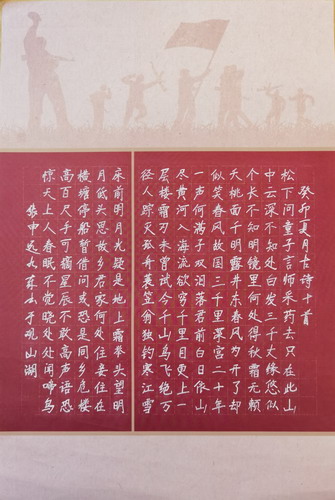 癸卯夏月古诗十首
松下问童子言师采药去只在此山
中云深不知处白发三千丈缘愁似
个长不知明镜里何处得秋霜无赖
夭桃面平明露井东春风为开了却
似笑春风故国三千里深宫二十年
一声何满子双泪落君前白日依山
尽黄河入海流欲穷千里目更上一
层楼霜刃未曾试今千山鸟飞绝万
径人踪灭孤舟蓑笠翁独钓寒江雪
床前明月光疑是地上霜举头望明
月低头思故乡君家何处住妾住在
横塘停船暂借问或恐是同乡危楼
高百尺手可摘星辰不敢高声语恐
惊天上人春眠不觉晓处处闻啼鸟
于观山湖